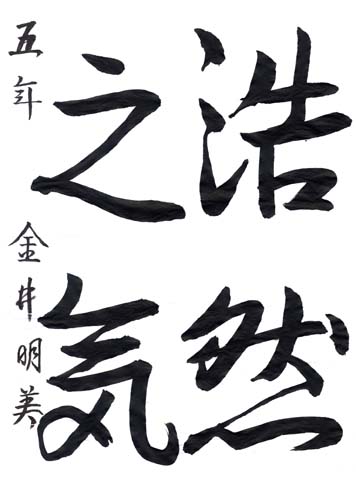 浩然
之気
五年 金井明美